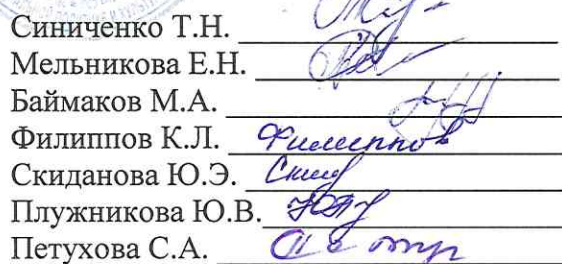 Синиченко Т.Н.
Мельникова Е.Н.
Баймаков М.А.
Филиппов К.Л. Филиппов
Скиданова Ю.Э. Скид
Плужникова Ю.В.
Петухова С.А.